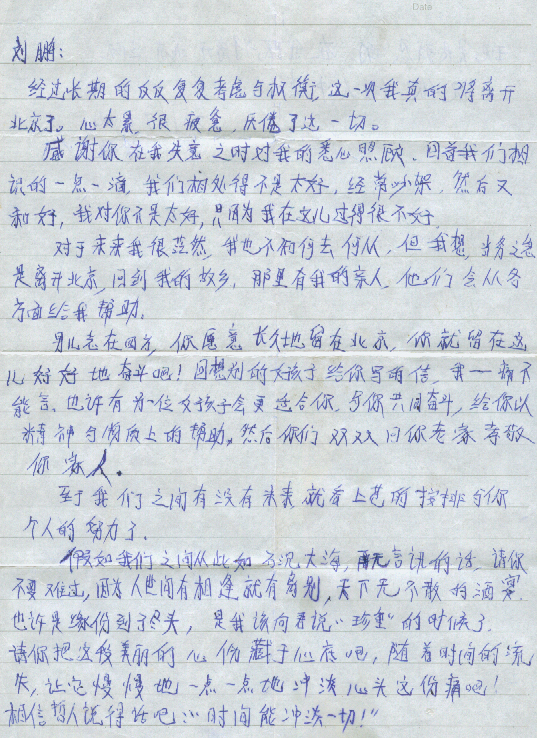 Date
刘鹏：
经过长期的反反复复考虑与权衡，这一次我真的将离开
北京了。心太累，很疲惫，厌倦了这一切。
感谢你在我失意之时对我的悉心照顾，回首我们相
识的一点一滴，我们相处得不是太好，经常吵架，然后又
和好，我对你不是太好，只因为我在这儿过得很不好。
对于未来我很茫然，我也不知何去何从，但我想，当务之急
是离开北京，回到我的故乡，那里有我的亲人，他们会从各
方面给我帮助。
男儿志在四方，你愿意长久地留在北京，你就留在这
儿好好地奋斗吧！回想别的女孩子给你写的信，我一痛不
能言。也许有另一位女孩子会更适合你，与你共同奋斗，给你以
精神与物质上的帮助。然后你们双双回你老家孝敬
你家人。
至于我们之间有没有未来就看上苍的安排与你
个人的努力了。
假如我们之间从此如石沉大海，再无言说的话，请你
不要难过，因为人世间有相逢就有离别，天下无不散的酒宴，
也许是缘份到了尽头，是我该向君说“珍重”的时候了。
请你把这段美丽的心伤藏于心底吧，随着时间的流
失，让它慢慢地一点一点地冲淡心头这份痛吧！
相信哲人说得话吧：“时间能冲淡一切！”